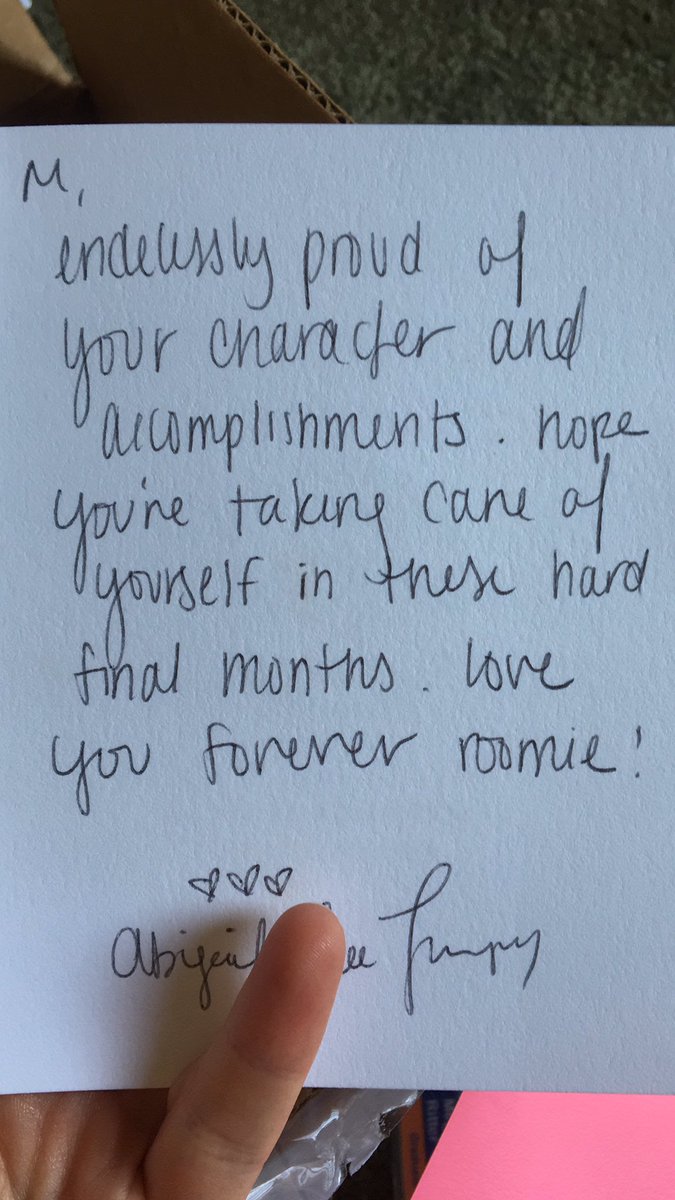 M,
endelessly proud of
your character and
accomplishments. hope
you're taking care of
yourself in these hard
final months. love
you forever roomie!
Abigail